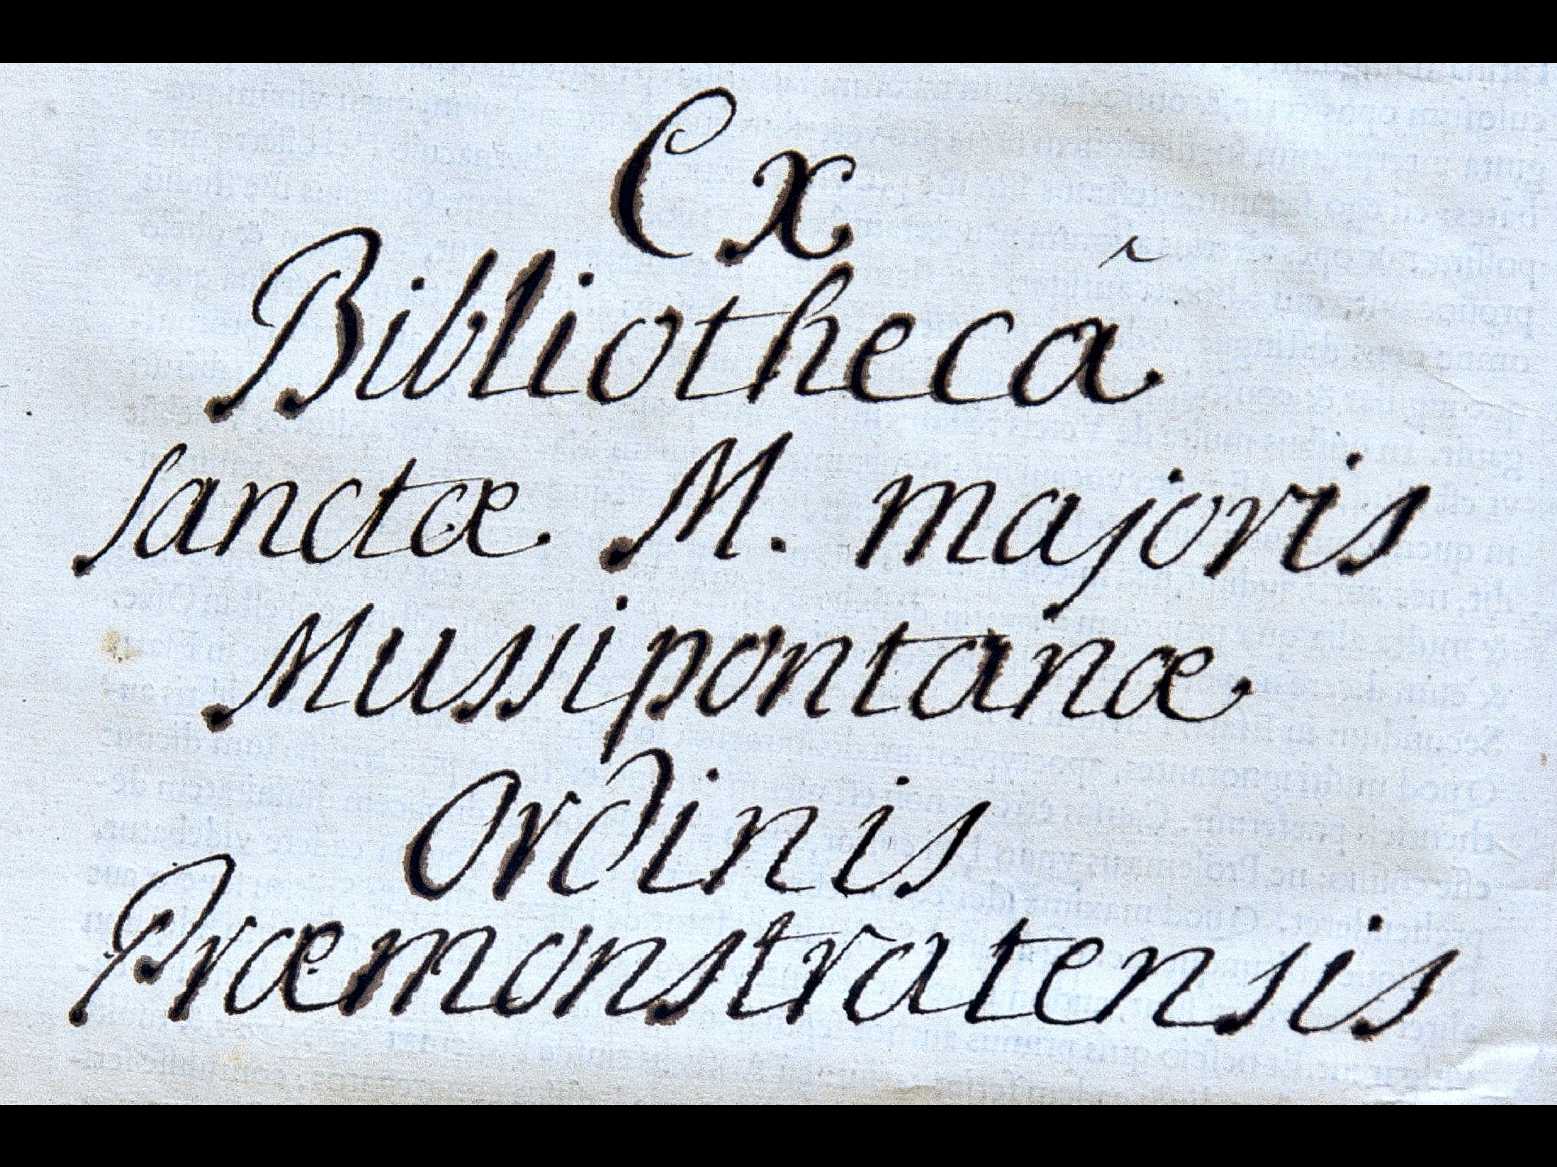 Ex
Bibliothecâ
sanctæ M. majoris
Mussipontanæ
Ordinis
Præmonstratensis